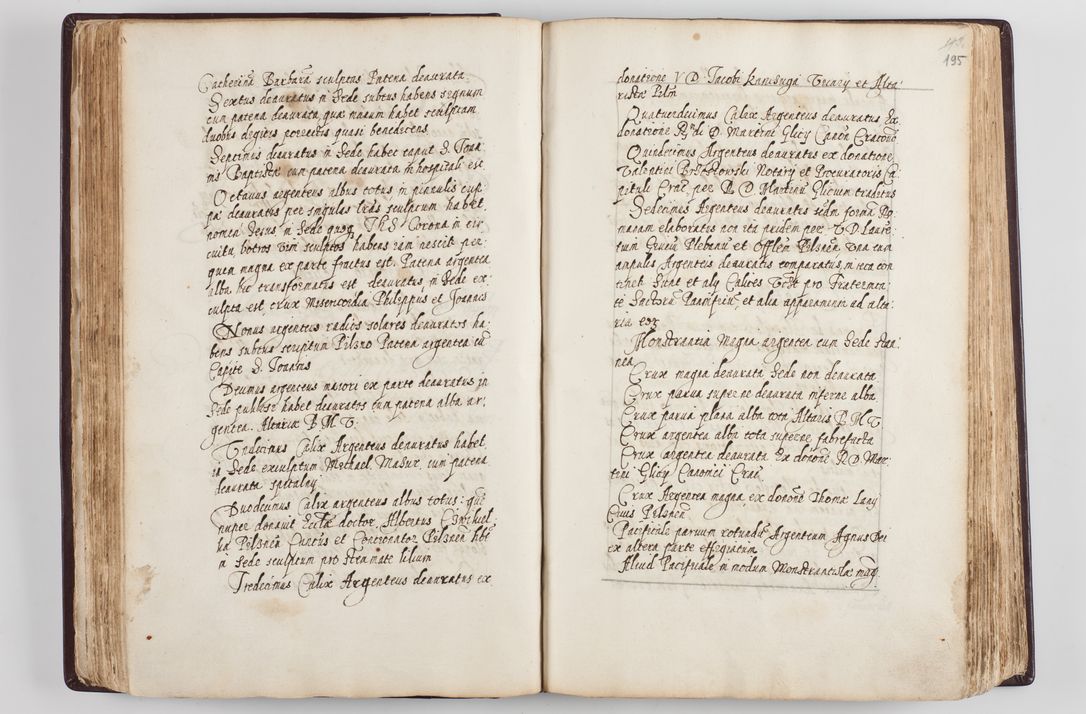 Catherinæ Barbaræ sculptus Patena deaurata
Sextus deauratus in Sede subtus habens signum
cum patena deaurata quæ manum habet sculptam
duobus digitis porrectis quasi benedicens
Septimus deauratus in Sede habet caput S. Joan
nis Baptistæ cum patena deaurata in hospitali est
Octauus argenteus albus totus in pinnulis cup
pa deauratus per singulas lras sculptum habet
nomen Jesus, in Sede quoq IHS Corona in cir
cuitu botros vini sculptos habens iam nescit per
quem magna ex parte fractus est. Patena argentea
alba hic transformatus est deauratus, in Sede ex
culpta est crux Misericordia Philippus et Joannes
Nonus argenteus radios solares deauratos ha
bens subtus scriptum Pilzno Patena argentea cū
Capite S. Joannis
Decimus argenteus maiori ex parte deauratus in
Sede habet deauratos cum patena alba ar,
gentea. Altaris B M V.
Vndecimus Calix Argenteus deauratus habet
in Sede exculptum Michael Masur cum patena
deaurata spitalny
Duodecimus Calix argenteus albus totus: quē
nuper donauit Ecclæ doctor, Albertus,
Pilsnēn Curatus et Concionator Pilsnēn
in Sede sculptum pro stemmate lilium
Tredecimus Calix Argenteus deauratus ex
195
donatione V D. Jacobi Vicarij et Alta
ristæ Pilzn
Quatuordecimus Calix Argenteus deauratus Ex
donatione Rndi D. Martini Glicy Canon Cracouien
Quindecimus Argenteus deauratus ex donatione
Valentini Notarij et Procuratoris Ca
pituli Crac per R D Martinū Glicium traditus
Sedecimus Argenteus deauratus scdm formā Ro
manam elaboratus non ita pridem per V D Laure
tium Plebanū et Offlēm Pilsnēn vna cum
ampulis Argenteis deauratis comparatus, in teca con
tinet Sunt et alij Calices pro Fraternita
te et alia apparamenta ad alta
ria
Monstrantia Magna argentea cum Sede stan
nea
Crux magna deaurata Sede non deaurata
Crux parua superne deaurata inferne alba
Crux parua plana alba tota Altaris B. M V
Crux argentea alba tota superne fabrefacta
Crux argentea deaurata Ex donone R. D. Mar
tini Glicy Canonici Crac.
Crux Argentea magna ex donone Thomæ
Ciuis Pilsnēn
Pacificale paruum rotundū Argenteum Agnus Dei
ex altera parte effigiatum
Aliud Pacificale in modum Monstrantiolæ mag: